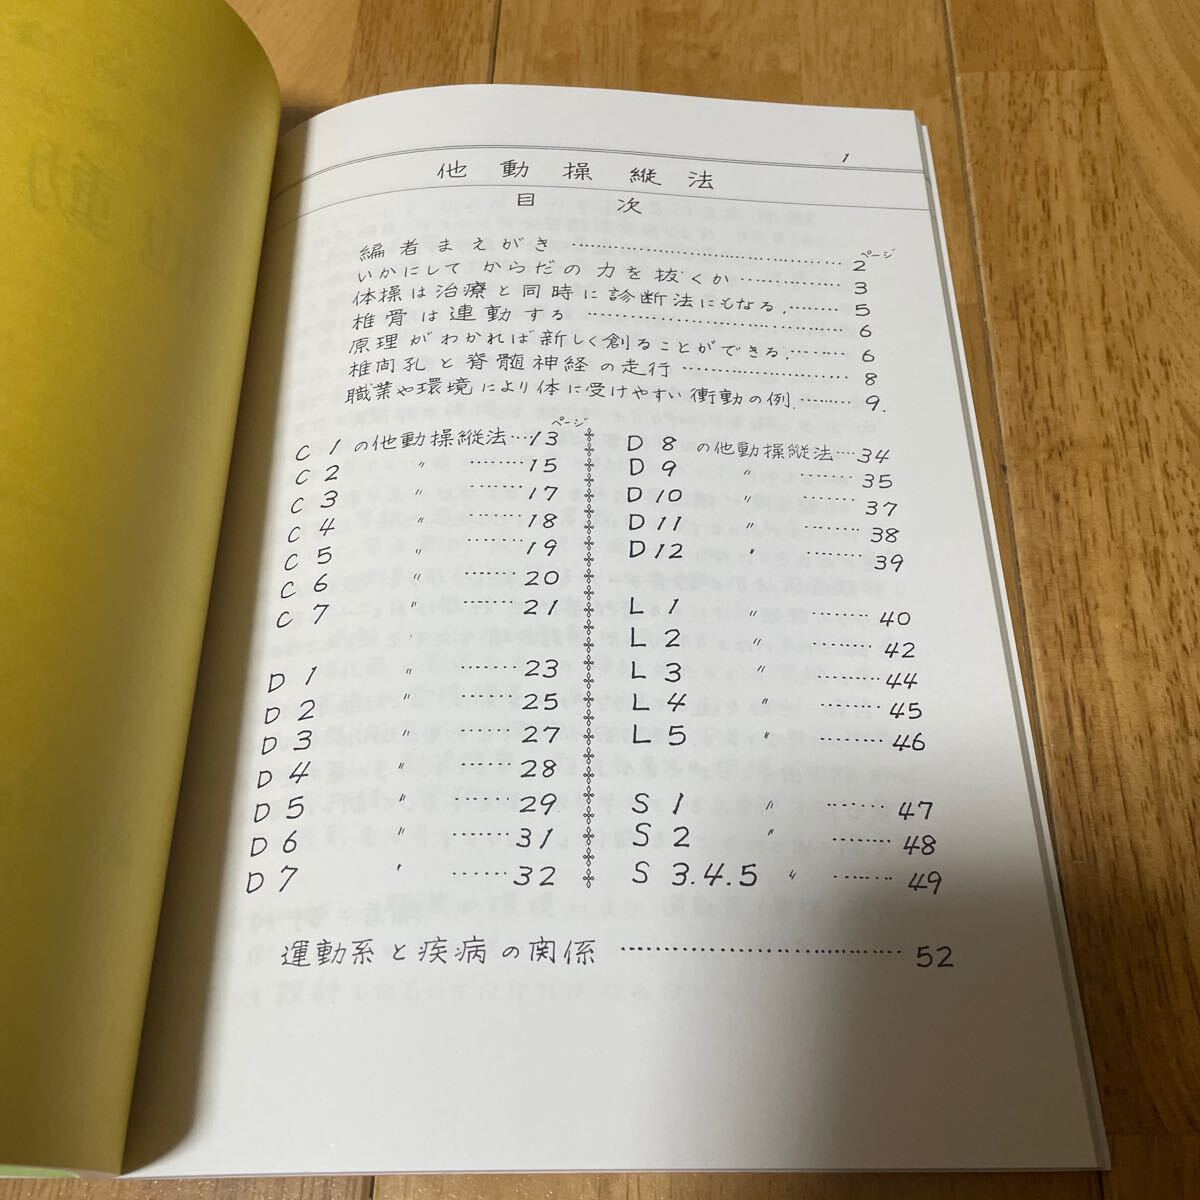 1
他動操縦法
目次
ページ
編者まえがき……………………………2
いかにしてからだの力を抜くか……………3
体操は治療と同時に診断法にもなる.………5
椎骨は連動する……………………………6
原理がわかれば新しく創ることができる.………6
椎向孔と脊髄神経の走行……………………8
職業や環境により体に受けやすい衝動の例.………9.
ページ
C1の他動操縦法…13
C2 〃 ………15
C3 〃 ………17
C4 〃 ………18
C5 〃 ………19
C6 〃 ………20
C7 〃 ………21
D1 〃 ………23
D2 〃 ………25
D3 〃 ………27
D4 〃 ………28
D5 〃 ………29
D6 〃 ………31
D7 〃 ………32
D8の他動操縦法…34
D9 〃 ………35
D10 〃 ………37
D11 〃 ………38
D12 〃 ………39
L1 〃 ………40
L2 〃 ………42
L3 〃 ………44
L4 〃 ………45
L5 〃 ………46
S1 〃 ………47
S2 〃 ………48
S3.4.5 〃 ………49
運動系と疾病の関係……………………………52